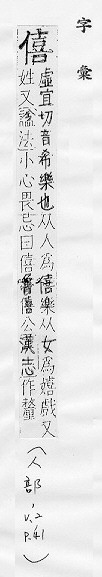 字彙
僖
虛宜切音希樂也从人為僖樂从女為嬉戲又
姓又諡法小心畏忌曰僖魯僖公漢志作釐
(人部, V.2 P.41)